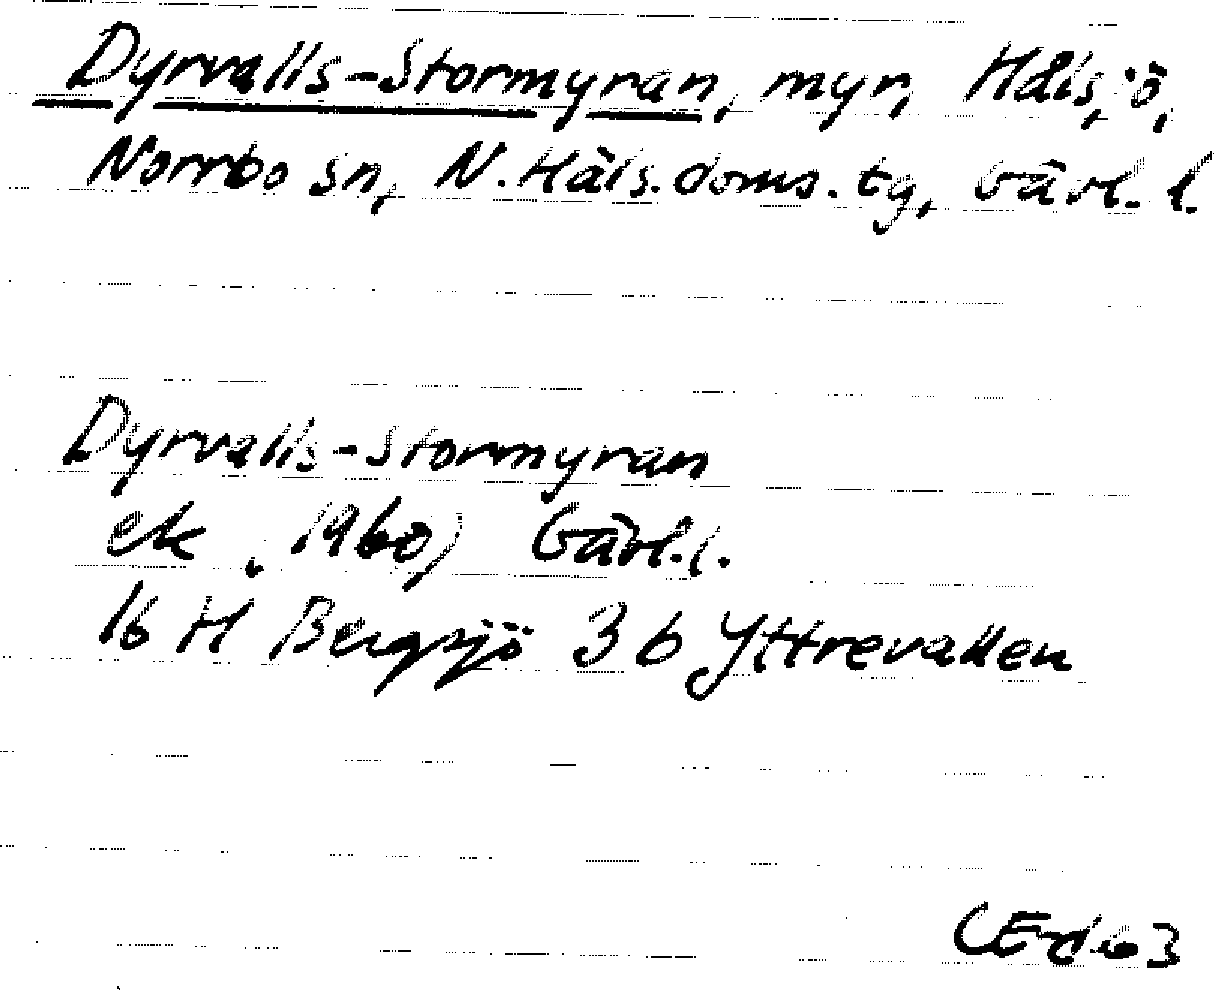 Dyrvalls-Stormyran, myr, Häls, ö,
Norrbo sn, N. Häls. doms. tg, Gävl. l.
Dyrvalls-Stormyran
ek, 1960, Gävl. l.
16 H Bergsjö 3 b Yttrevallen